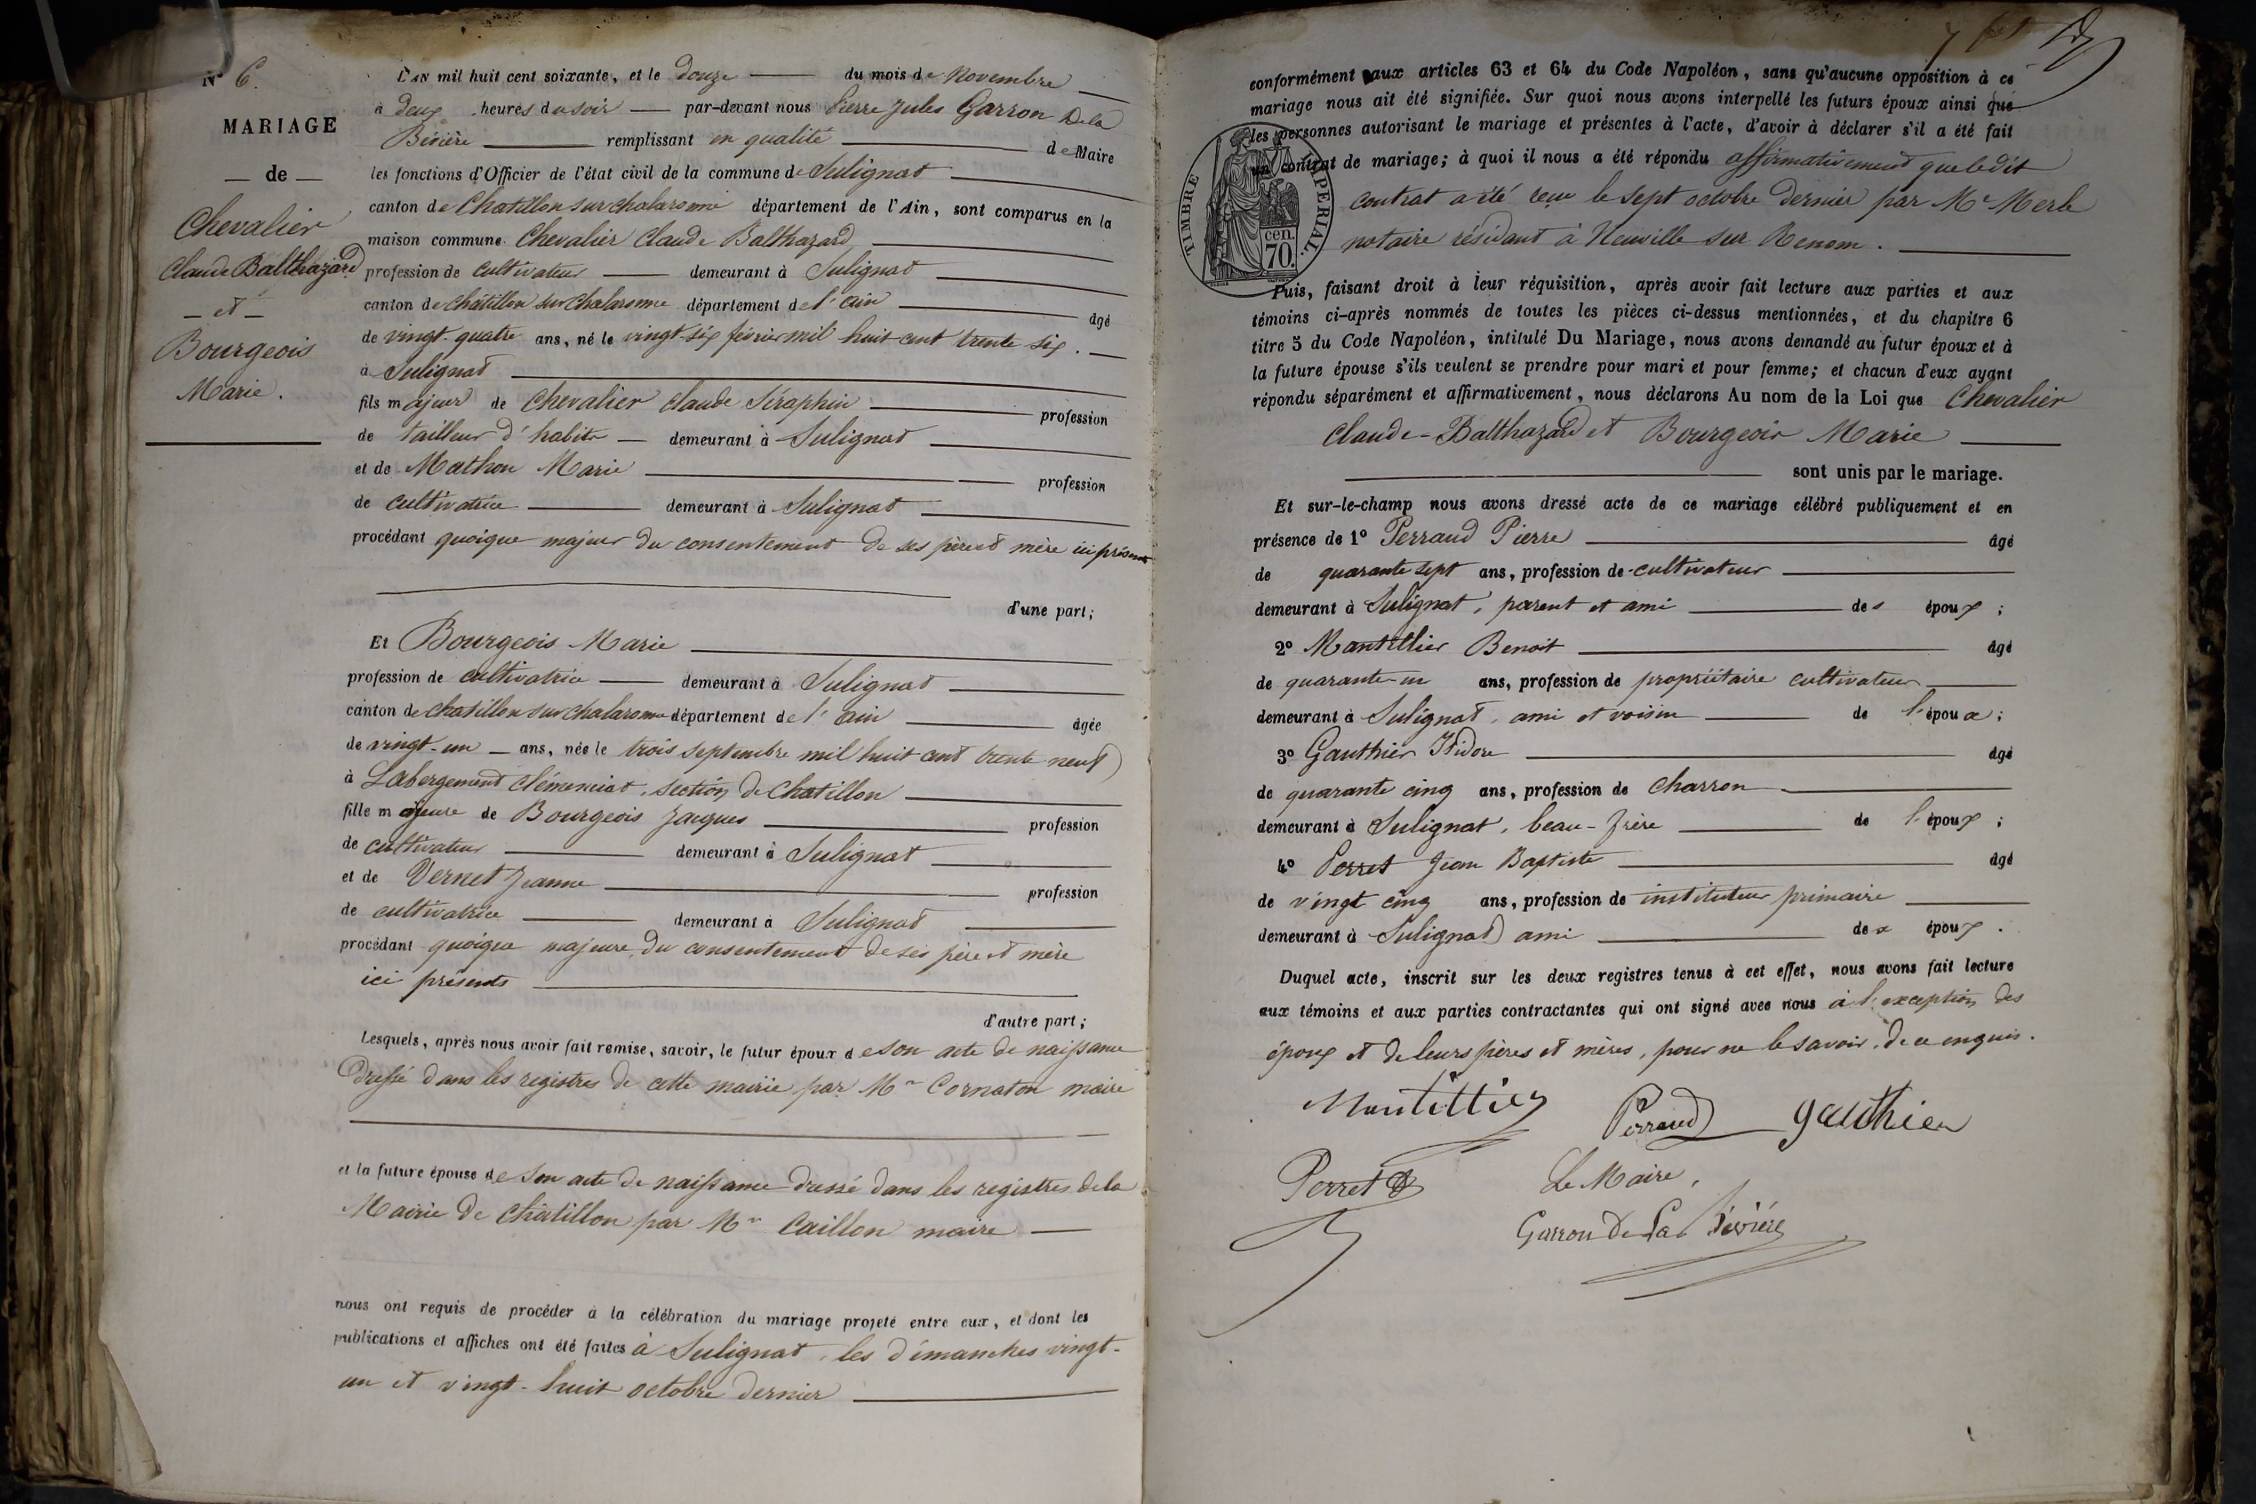 N° 6.
MARIAGE
— de —
Chevalier
Claude Balthazard
— et —
Bourgeois
Marie.
L'AN mil huit cent soixante, et le douze du mois de Novembre
à deux heures du soir par-devant nous Pierre Jules Garron De la
Bévière remplissant en qualité de Maire
les fonctions d'Officier de l'état civil de la commune de Sulignat
canton de Chatillon sur chalaronne département de l'Ain, sont comparus en la
maison commune Chevalier Claude Balthazard
profession de cultivateur demeurant à Sulignat
canton de châtillon sur chalaronne département de l'ain âgé
de vingt-quatre ans, né le vingt-six février mil huit cent trente six.
à Sulignat
fils majeur de Chevalier Claude Séraphin profession
de tailleur d'habits demeurant à Sulignat
et de Mathon Marie profession
de cultivatrice demeurant à Sulignat
procédant quoique majeur du consentement de ses père et mère ici présents
d'une part;
Et Bourgeois Marie
profession de cultivatrice demeurant à Sulignat
canton de chatillon sur chalaronne département de l'ain âgée
de vingt-un ans, née le trois septembre mil huit cent trente neuf
à Labergement clémenciat, section de Chatillon
fille majeure de Bourgeois Jacques profession
de cultivateur demeurant à Sulignat
et de Vernet Jeanne profession
de cultivatrice demeurant à Sulignat
procédant quoique majeure, du consentement de ses père et mère
ici présents
d'autre part;
Lesquels, après nous avoir fait remise, savoir, le futur époux de son acte de naissance
dressé dans les registres de cette mairie par Mr Cornaton maire
et la future épouse de son acte de naissance dressé dans les registres de la
Mairie de châtillon par Mr Caillon maire
nous ont requis de procéder à la célébration du mariage projeté entre eux, et dont les
publications et affiches ont été faites à Sulignat, les dimanches vingt-
un et vingt-huit octobre dernier
conformément aux articles 63 et 64 du Code Napoléon, sans qu'aucune opposition à ce
mariage nous ait été signifiée. Sur quoi nous avons interpellé les futurs époux ainsi que
les personnes autorisant le mariage et présentes à l'acte, d'avoir à déclarer s'il a été fait
un contrat de mariage; à quoi il nous a été répondu affirmativement que ledit
contrat a été reçu le sept octobre dernier par Me Merle
notaire résidant à Neuville sur Renom.
TIMBRE IMPERIAL
cen.
70.
Puis, faisant droit à leur réquisition, après avoir fait lecture aux parties et aux
témoins ci-après nommés de toutes les pièces ci-dessus mentionnées, et du chapitre 6
titre 5 du Code Napoléon, intitulé Du Mariage, nous avons demandé au futur époux et à
la future épouse s'ils veulent se prendre pour mari et pour femme; et chacun d'eux ayant
répondu séparément et affirmativement, nous déclarons Au nom de la Loi que Chevalier
Claude-Balthazard et Bourgeois Marie
sont unis par le mariage.
Et sur-le-champ nous avons dressé acte de ce mariage célébré publiquement et en
présence de 1° Perraud Pierre âgé
de quarante sept ans, profession de cultivateur
demeurant à Sulignat, parent et ami des époux;
2° Mantillier Benoit âgé
de quarante-un ans, profession de propriétaire cultivateur
demeurant à Sulignat, ami et voisin de l'époux;
3° Gauthier Isidore âgé
de quarante cinq ans, profession de charron
demeurant à Sulignat, beau-frère de l'époux;
4° Perret Jean Baptiste âgé
de vingt cinq ans, profession de instituteur primaire
demeurant à Sulignat ami des époux.
Duquel acte, inscrit sur les deux registres tenus à cet effet, nous avons fait lecture
aux témoins et aux parties contractantes qui ont signé avec nous à l'exception des
époux et de leurs pères et mères, pour ne le savoir, de ce enquis.
Mantillier Perraud gauthier
Perret
Le Maire,
Garron De La Bévière